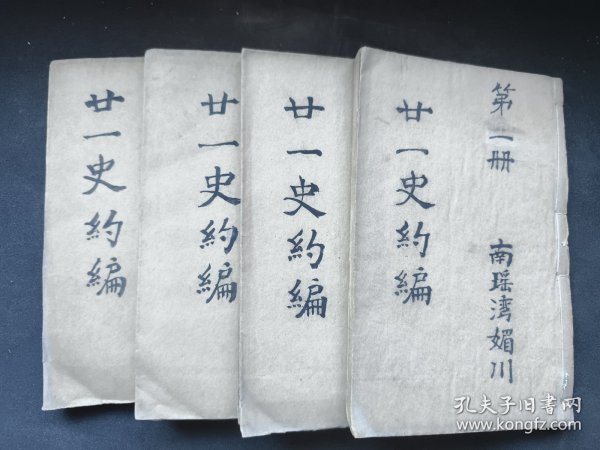 第一册
南瑶湾媚川
廿一史約編
廿一史約編
廿一史約編
廿一史約編
孔夫子旧书网
www.kongfz.com